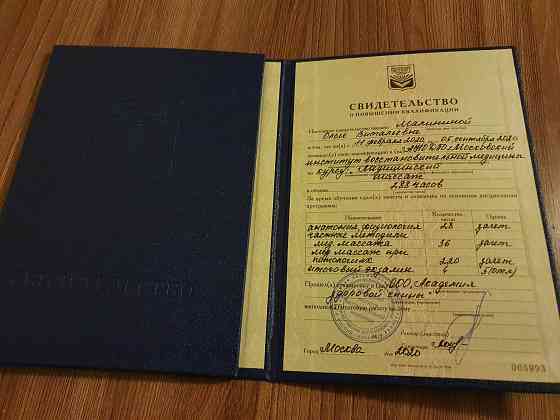 СВИДЕТЕЛЬСТВО
О ПОВЫШЕНИИ КВАЛИФИКАЦИИ
Настоящее свидетельство выдано Малининой
Ольге Витальевне
в том, что он(а) с 11 февраля 2020 05 сентября 2020
АНО КДО "Московский
институт восстановительной медицины
курсу: Медицинский
массаж
в объеме 288 часов
За время обучения сдал(а) зачеты и экзамены по основным дисциплинам
программы:
Наименование Количество часов Оценка
анатомия физиология 28 зачет
частные методики
мед. массажа 36 зачет
мед массаж при
патологиях 220 зачет
итоговый экзамен 4 5(отл)
Прошел(а) стажировку в (на) ООО, Академия
здоровой спины"
выполнил(а) итоговую работу на тему
Город Москва год 2020
005993